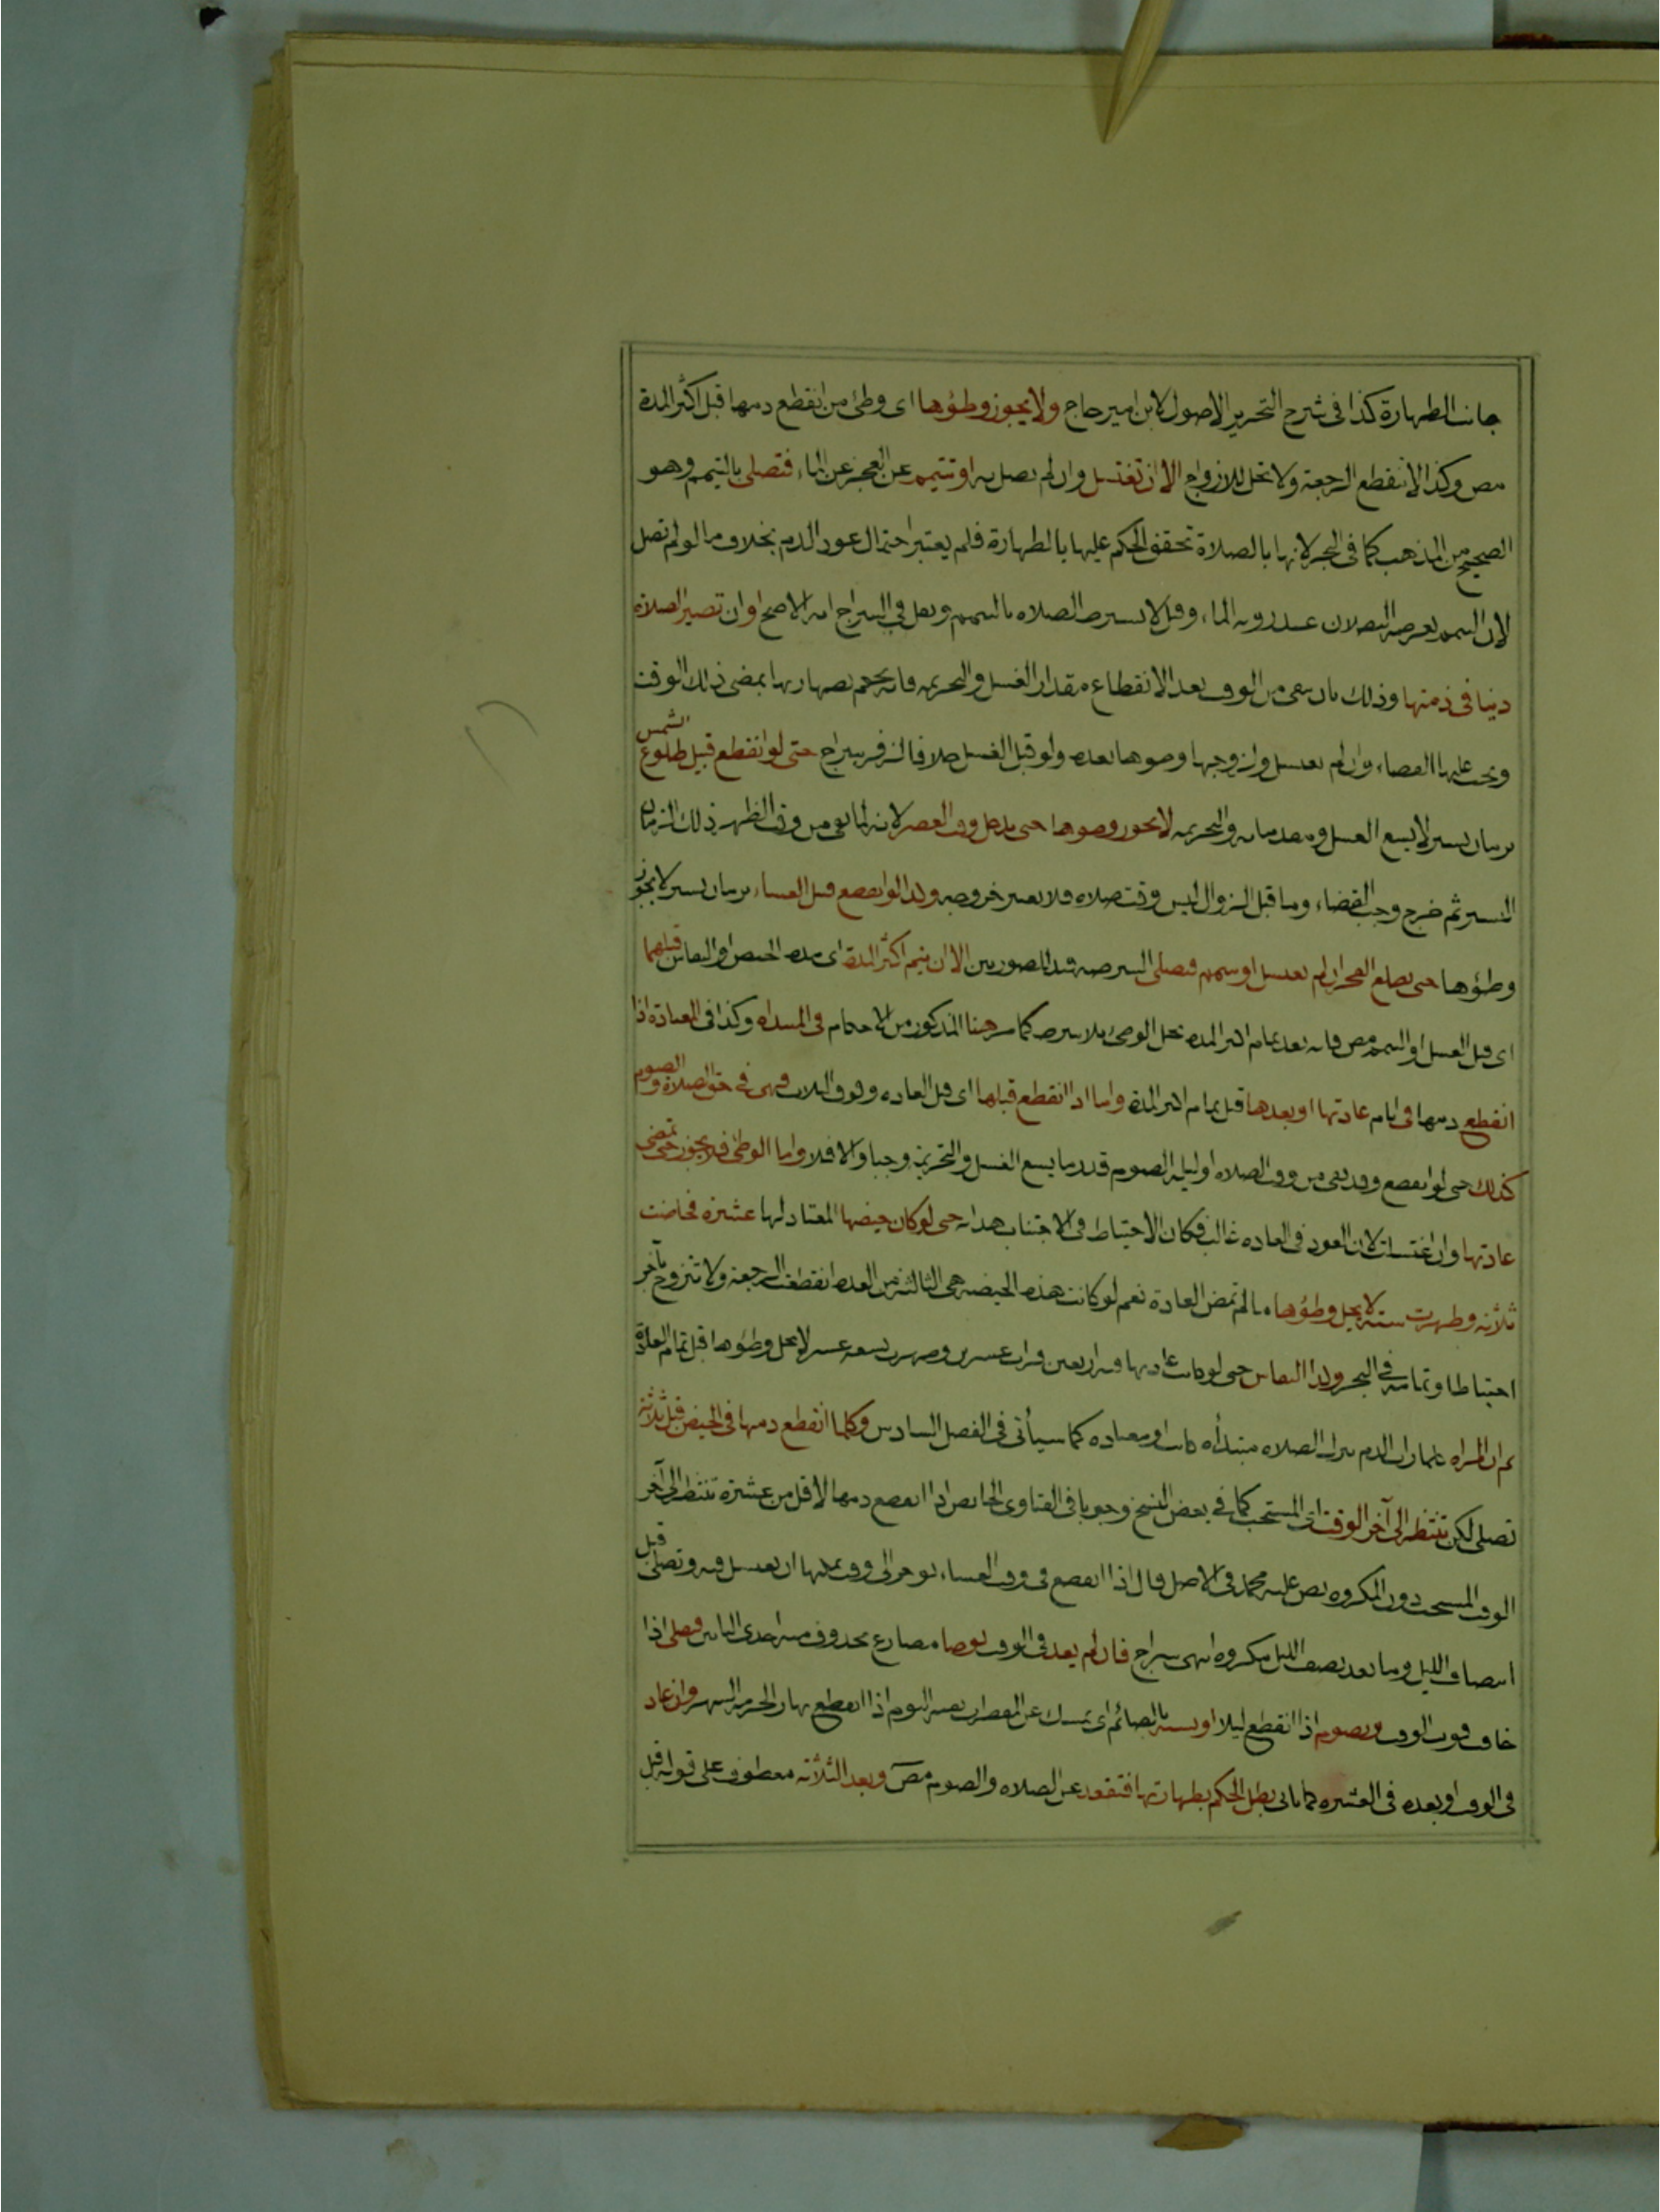 جانب الطهارة كذا فى شرح التحرير الاصولى لابن امير حاج ولا يجوز وطؤها اى وطئ من انقطع دمها قبل اكثر المدة
مص وكذا لا تنقطع الرجعة ولا تحل للازواج الا ان تغتسل وان لم تصل به او تتيمم عن العجز عن الماء فتصلى بالتيمم وهو
الصحيح من المذهب كما فى البحر لانها بالصلاة تحقق الحكم عليها بالطهارة فلم يعتبر احتمال عود الدم بخلاف ما لو لم تصل
لان التيمم بعرضة البطلان عند روية الماء وقيل لا يشترط الصلاة بالتيمم ونقل فى السراج انه الاصح او ان تصير الصلاة
دينا فى ذمتها وذلك بان يبقى من الوقت بعد الانقطاع مقدار الغسل والتحريمة فانه يحكم بطهارتها بمضى ذلك الوقت
ويجب عليها القضاء وان لم تغتسل ولزوجها وطؤها بعده ولو قبل الغسل خلافا لزفر سراج حتى لو انقطع قبيل طلوع الشمس
بزمان يسير لا يسع الغسل ومقدماته والتحريمة لا يجوز وطؤها حتى يدخل وقت العصر لانه لما بقى من وقت الظهر ذلك الزمان
اليسير ثم خرج وجب القضاء وما قبل الزوال ليس وقت صلاة فلا يعتبر خروجه وكذا لو انقطع قبيل العشاء بزمان يسير لا يجوز
وطؤها حتى يطلع الفجر ان لم تغتسل او تتيمم فتصلى الشرطية قيد للصورتين الا ان يتم اكثر المدة اى مدة الحيض او النفاس قبلهما
اى قبل الغسل او التيمم مص فانه بعد تمام اكثر المدة يحل الوطئ بلا شرط كما مر هنا المذكور من الاحكام فى المبتدأة وكذا فى المعتادة اذا
انقطع دمها فى ايام عادتها او بعدها قبل تمام اكثر المدة واما اذا انقطع قبلها اى قبل العادة وفوق الثلاث فهى فى حق الصلاة والصوم
كذلك حتى لو انقطع وقد بقى من وقت الصلاة او ليلة الصوم قدر ما يسع الغسل والتحريمة وجبا والا فلا واما الوطئ فلا يجوز حتى تمضى
عادتها وان اغتسلت لان العود فى العادة غالب فكان الاحتياط فى الاجتناب هداية حتى لو كان حيضها المعتاد لها عشرة فحاضت
ثلاثة وطهرت ستة لا يحل وطؤها ما لم تمض العادة نعم لو كانت هذه الحيضة هى الثالثة من العدة انقطعت الرجعة ولا تتزوج بآخر
احتياطا وتمامه فى البحر وكذا النفاس حتى لو كانت عادتها فيه اربعين فرأت عشرين وطهرت تسعة عشر لا يحل وطؤها قبل تمام العادة
ثم ان المرأة كلما رأت الدم تترك الصلاة مبتدأة كانت او معتادة كما سيأتى فى الفصل السادس وكلما انقطع دمها فى الحيض قبل ثلثة
تصلى لكن تنتظر الى آخر الوقت اى المستحب كما فى بعض النسخ وجوبا فى الفتاوى الحائض اذا انقطع دمها لاقل من عشرة تنتظر الى آخر
الوقت المستحب دون المكروه نص عليه محمد فى الاصل قال اذا انقطع فى وقت العشاء تؤخر الى وقت يمكنها ان تغتسل فيه وتصلى قبل
انتصاف الليل وما بعد نصف الليل مكروه انتهى سراج فان لم يعد فى الوقت توضا مضارع محذوف منه احدى التائين فتصلى اذا
خافت فوت الوقت وتصوم اذا انقطع ليلا او تشبه بالصائم اى تمسك عن المفطرات بقية اليوم اذا انقطع نهارا لحرمة الشهر وان عاد
فى الوقت او بعده فى العشرة كما ياتى بطل الحكم بطهارتها فتقعد عن الصلاة والصوم مص وبعد الثلثة معطوف على قوله قبل